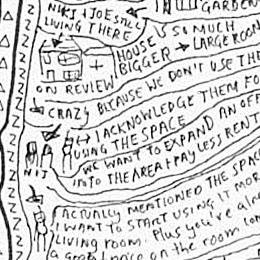 NIKI + JOE STILL
LIVING THERE
GARDEN
HOUSE
BIGGER
SO MUCH
LARGE ROOM
ON REVIEW
CRAZY BECAUSE WE DON'T USE THE
I ACKNOWLEDGE THEM FO
USING THE SPACE
WE WANT TO EXPAND AN OFF
INTO THE AREA + PAY LESS RENT
NIJ
I ACTUALLY MENTIONED THE SPAC
I WANT TO START USING IT MOR
LIVING ROOM. Plus you're alre
a good price on the room